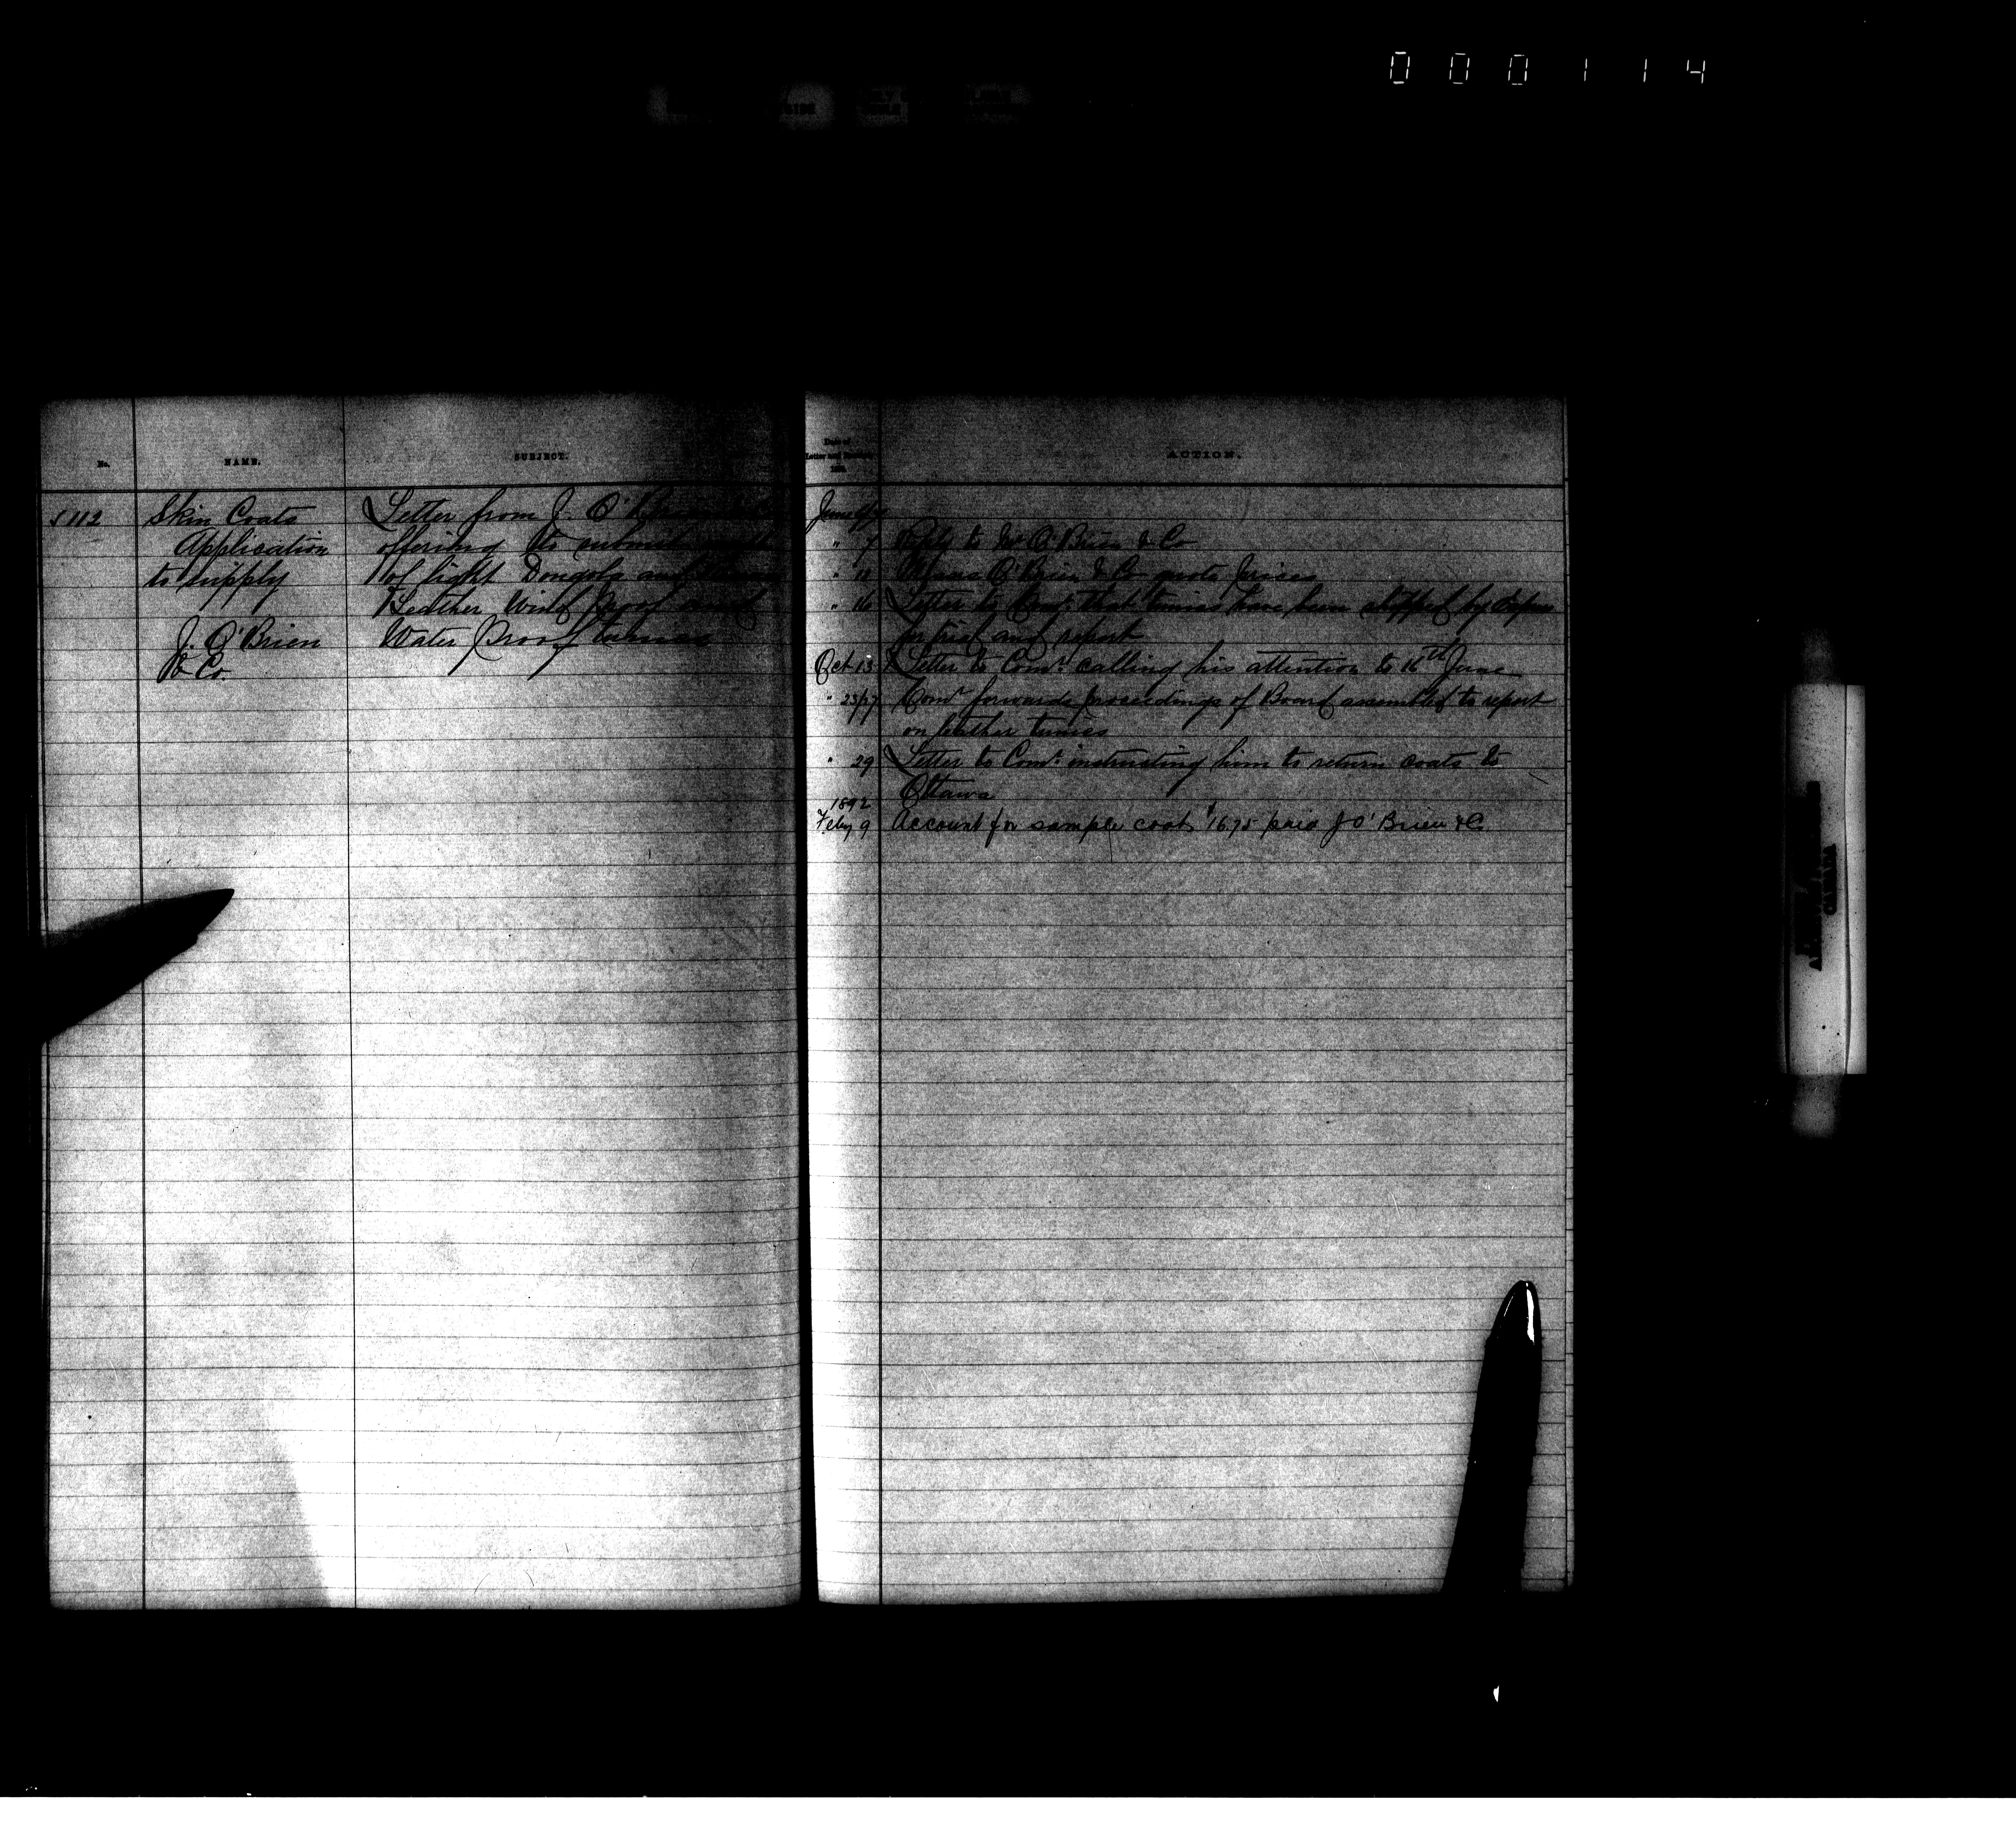 0 0 0 1 1 4
No.
NAME.
SUBJECT.
Date of
Letter and
ACTION.
112
Skin Coats
Application
to supply
J. O'Brien
& Co.
Letter from J. O'Brien & Co
offering to submit
of light Dongola and
Leather Wind Proof and
Water Proof tunics
June
" 7 Reply to O'Brien & Co
" O'Brien & Co quote prices
" 16 Letter to Comr. that tunics have been shipped by
for trial and report
Oct 13 Letter to Comr. calling his attention to 16th June
" 23/27 Comr forwards proceedings of Board assembled to report
on leather tunics
" 29 Letter to Comr. instructing him to return coats to
Ottawa
1892
Feby 9 Account for sample coat $16.75 paid J O'Brien & Co